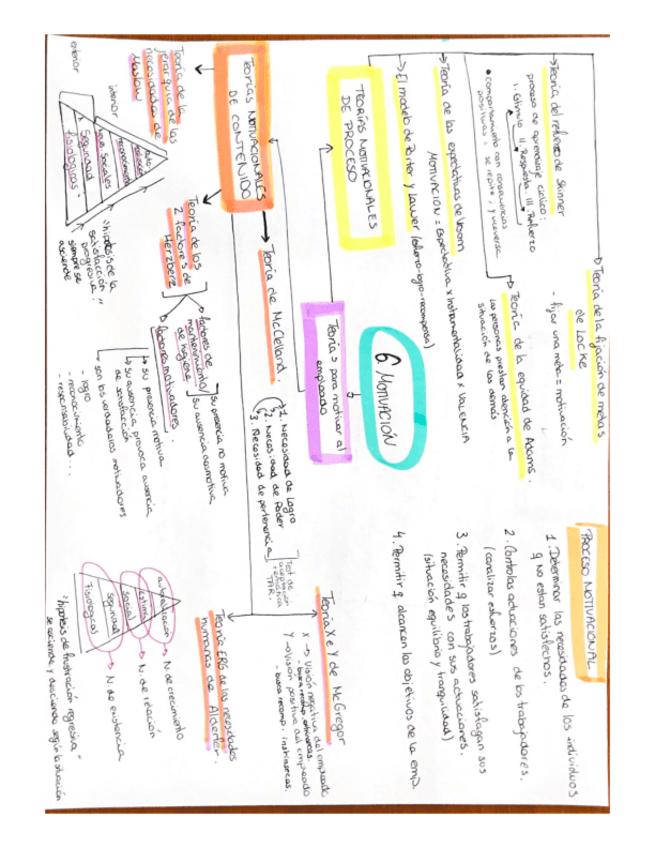 6. MOTIVACIÓN
Teorías para motivar al
empleado
TEORÍAS MOTIVACIONALES
DE PROCESO
→ Teoría del refuerzo de Skinner
proceso de aprendizaje cíclico:
I. Estímulo II. Respuesta III. Refuerzo
• comportamiento con consecuencias
positivas = se repite, y viceversa
→ Teoría de la fijación de metas
de Locke
- fijar una meta = motivación
→ Teoría de las expectativas de Vroom
MOTIVACIÓN = Expectativa x Instrumentalidad x Valencia
→ Teoría de la equidad de Adams.
Las personas prestan atención a la
situación de los demás
→ El modelo de Porter y Lawler (esfuerzo-logro-recompensa)
TEORÍAS MOTIVACIONALES
DE CONTENIDO
Teoría de la
jerarquía de las
necesidades de
Maslow
exterior
interior
reconocimiento
nece. sociales
Seguridad
fisiológicas
"hipótesis de la
satisfacción
progresiva"
siempre se
asciende
Teoría de los
2 factores de
Herzberg
→ factores de
mantenimiento/
de higiene
su presencia no motiva
su ausencia desmotiva
→ factores motivadores.
→ su presencia motiva
→ su ausencia provoca ausencia
de satisfacción
→ son los verdaderos motivadores
- logro
- reconocimiento
- responsabilidad...
Teoría de McClelland.
1. Necesidad de Logro
2. Necesidad de Poder
3. Necesidad de pertenencia
Test de
TAR.
Teoría X e Y de McGregor
X → Visión negativa del empleado
- busca recomp. extrínsecas.
Y → Visión positiva del empleado
- busca recomp. instrínsecas.
Teoría ERG de las necesidades
humanas de Alderfer.
autorrealización
estima
social
seguridad
Fisiológicas
N. de crecimiento
N. de relación
N. de existencia
"hipótesis de frustración regresiva"
se asciende y desciende según la situación
PROCESO MOTIVACIONAL
1. Determinar las necesidades de los individuos
q no estan satisfechos.
2. Controlas actuaciones de los trabajadores.
(canalizar esfuerzos)
3. Permitir q los trabajadores satisfagan sus
necesidades con sus actuaciones.
(situación equilibrio y tranquilidad)
4. Permitir q alcancen los objetivos de la emp.